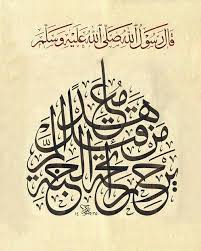 قَالَ رَسُولُ اللّٰهِ صَلَّى اللّٰهُ عَلَيْهِ وَسَلَّمَ
من قتل معاهداً لم يرح رائحة الجنة